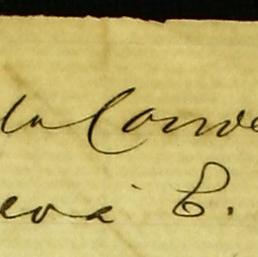 la Conve
eva E.